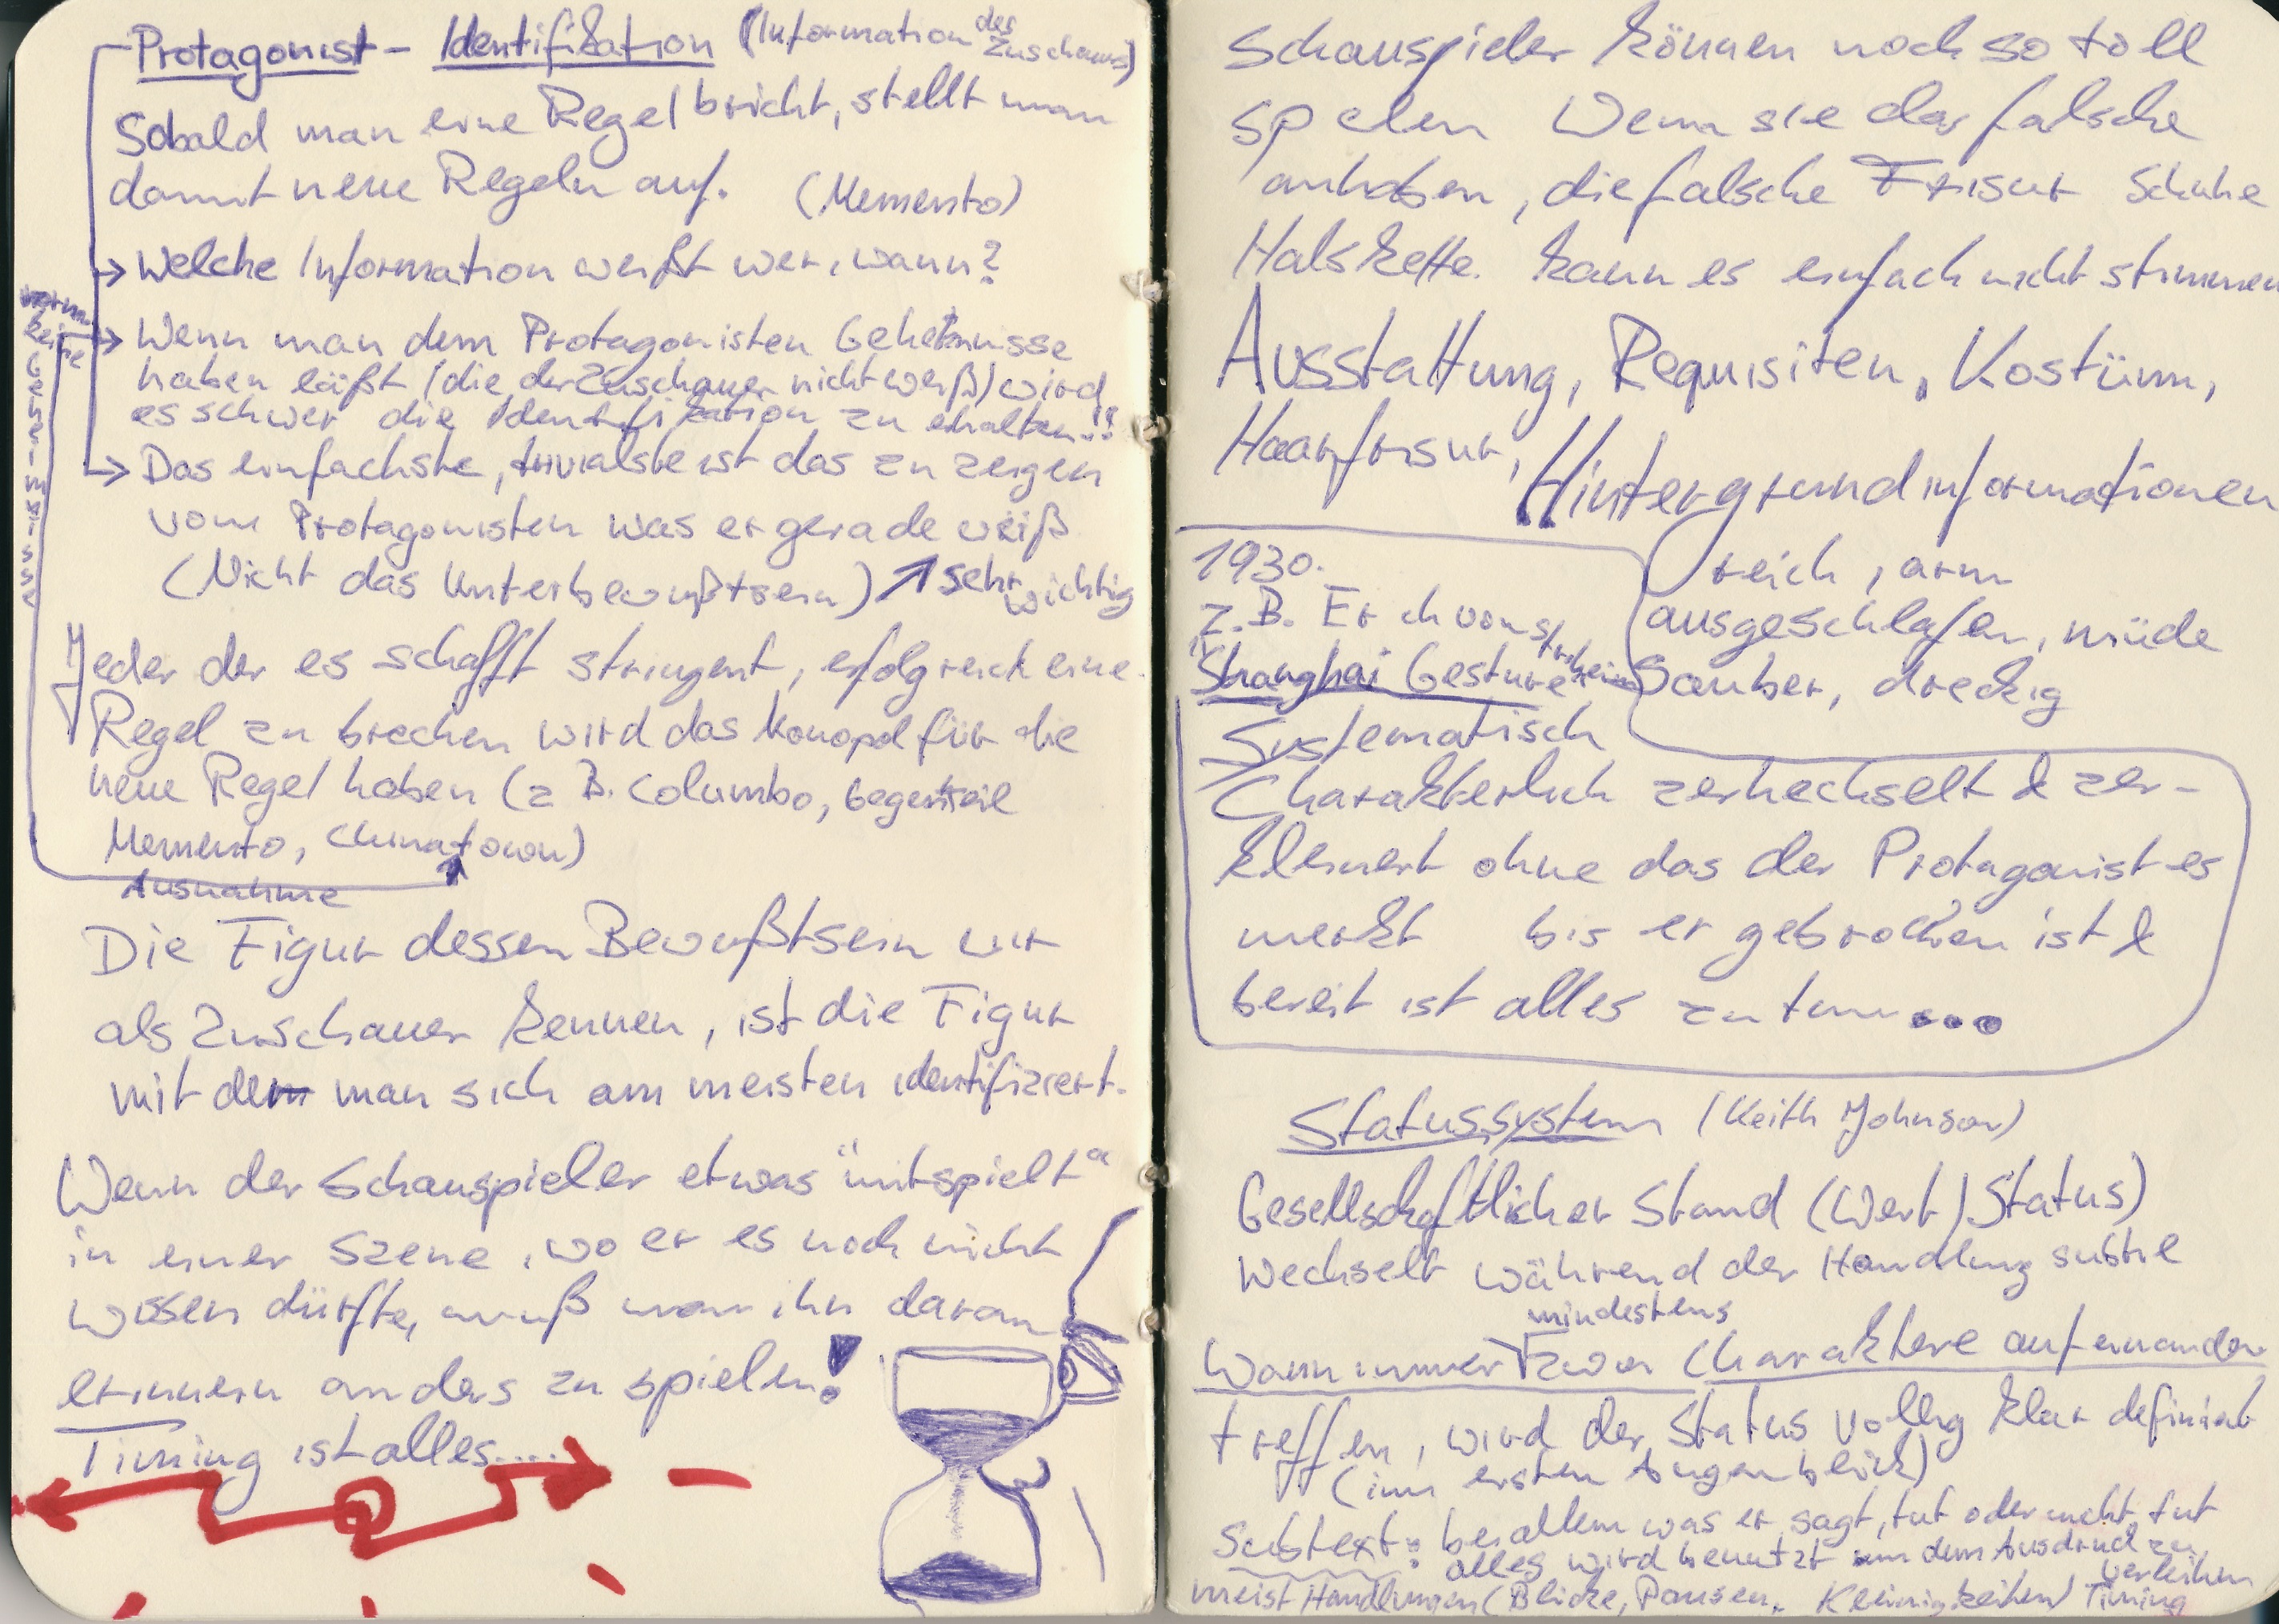 Protagonist – Identifikation (Information des Zuschauers)
Sobald man eine Regel bricht, stellt man
damit neue Regeln auf. (Memento)
→ Welche Information weißt wer, wann?
→ Wenn man dem Protagonisten Geheimnisse
haben läßt (die der Zuschauer nicht weiß) wird
es schwer die Identifikation zu erhalten!!
→ Das einfachste, trivialste ist das zu zeigen
vom Protagonisten was er gerade weiß
(Nicht das Unterbewußtsein) ↗ sehr wichtig
keine
Geheimnisse
Jeder der es schafft stringent, erfolgreich eine
Regel zu brechen wird das Monopol für die
neue Regel haben (z B. Columbo, Gegenteil
Memento, Chinatown)
Ausnahme
Die Figur dessen Bewußtsein wir
als Zuschauer kennen, ist die Figur
mit der man sich am meisten identifiziert.
Wenn der Schauspieler etwas "mitspielt"
in einer Szene, wo er es noch nicht
wissen dürfte, muß man ihn daran
erinnern anders zu spielen!
Timing ist alles....
Schauspieler können noch so toll
spielen Wenn sie das falsche
anhaben, die falsche Frisur Schuhe
Halskette. kann es einfach nicht stimmen
Ausstattung, Requisiten, Kostüm,
Haarfrisur, Hintergrundinformationen
reich, arm
ausgeschlafen, müde
Sauber, dreckig
1930.
z.B. Erich von Stroheim
"Shanghai Gesture"
Systematisch
Charakterlich zerhechselt & zer-
kleinert ohne das der Protagonist es
merkt bis er gebrochen ist &
bereit ist alles zu tun...
Statussystem (Keith Johnson)
Gesellschaftlicher Stand (Wert/Status)
Wechselt während der Handlung subtil
mindestens
Wann immer zwei Charaktere aufeinander
treffen, wird der Status völlig klar definiert
(im ersten Augenblick)
Subtext: bei allem was er sagt, tut oder nicht tut
alles wird benutzt um dem Ausdruck zu
verleihen
meist Handlungen (Blicke, Pausen, Kleinigkeiten) Timing